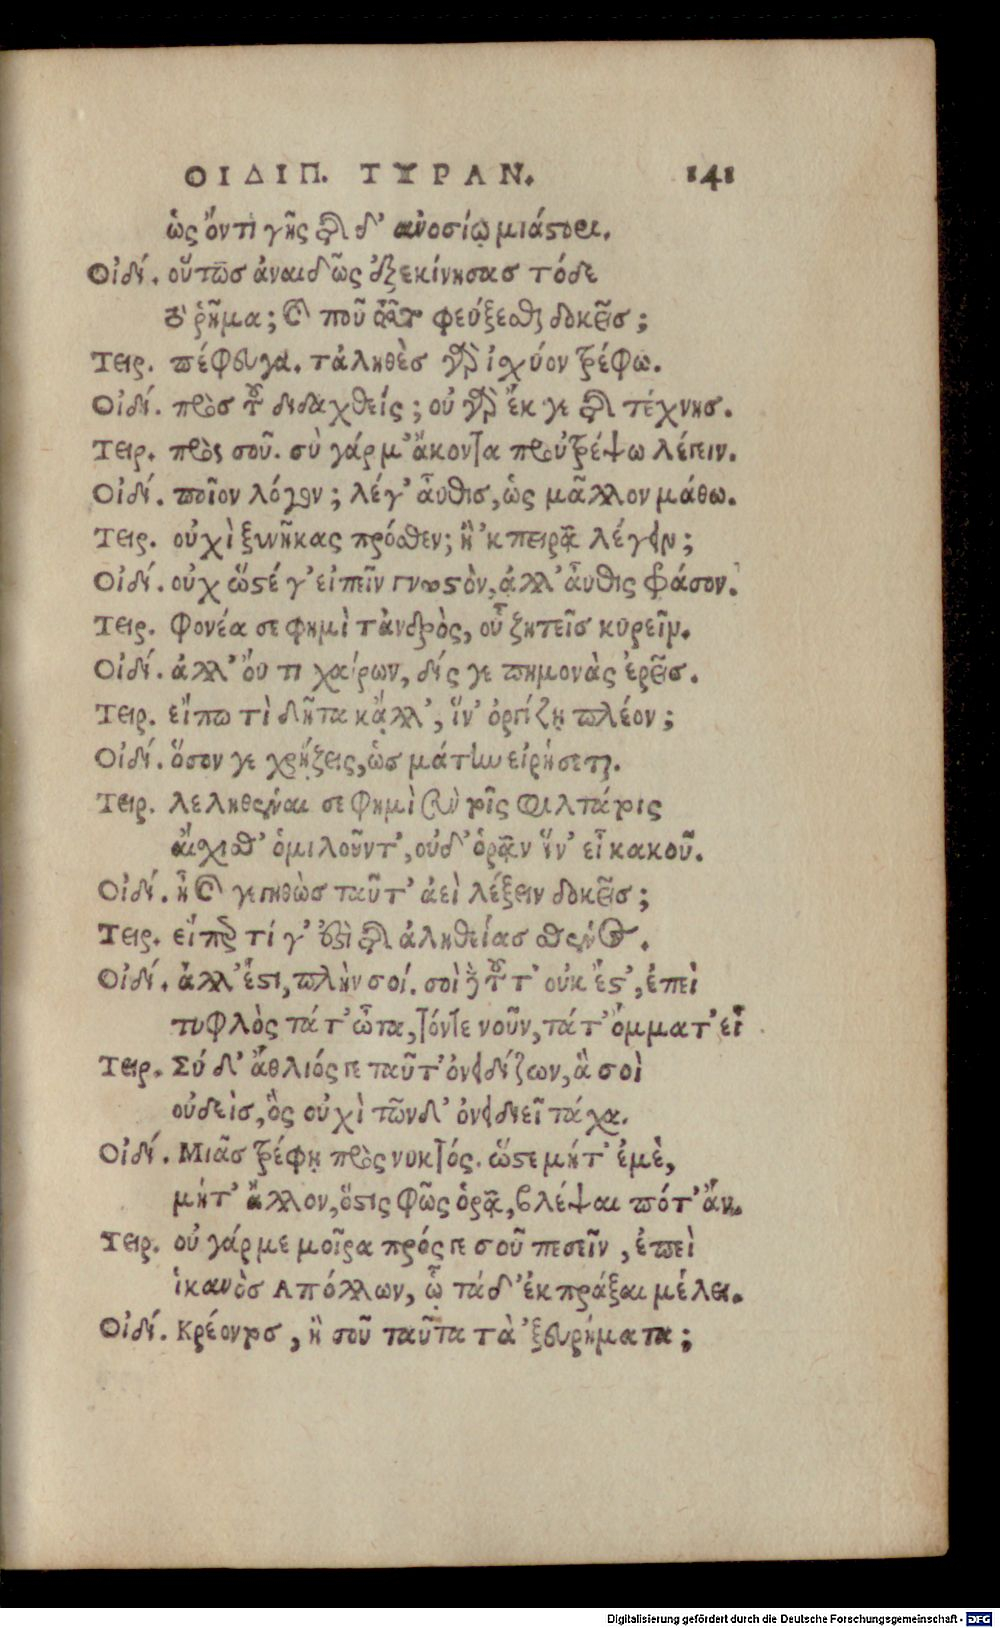 ΟΙΔΙΠ. ΤΥΡΑΝ. 141
ὡς ὄντι γῆς τῆσδ' ἀνοσίῳ μιάστορι.
Οἰδί. οὕτως ἀναιδῶς ἐξεκίνησας τόδε
τὸ ῥῆμα; καὶ ποῦ τοῦτο φεύξεσθαι δοκεῖς;
Τειρ. πέφευγα. τἀληθὲς γὰρ ἰσχύον τρέφω.
Οἰδί. πρὸς τοῦ διδαχθείς; οὐ γὰρ ἔκ γε τῆς τέχνης.
Τειρ. πρὸς σοῦ. σὺ γάρ μ' ἄκοντα προὐτρέψω λέγειν.
Οἰδί. ποῖον λόγον; λέγ' αὖθις, ὡς μᾶλλον μάθω.
Τειρ. οὐχὶ ξυνῆκας πρόσθεν; ἢ 'κπειρᾷ λέγειν;
Οἰδί. οὐχ ὥστέ γ' εἰπεῖν γνωστὸν, ἀλλ' αὖθις φράσον.
Τειρ. φονέα σε φημὶ τἀνδρὸς, οὗ ζητεῖς κυρεῖν.
Οἰδί. ἀλλ' οὔ τι χαίρων, δίς γε πημονὰς ἐρεῖς.
Τειρ. εἴπω τὶ δῆτα κἄλλ', ἵν' ὀργίζῃ πλέον;
Οἰδί. ὅσον γε χρῄζεις, ὡς μάτην εἰρήσεται.
Τειρ. λεληθέναι σε φημὶ σὺν τοῖς φιλτάτοις
αἴσχισθ' ὁμιλοῦντ', οὐδ' ὁρᾷν ἵν' εἶ κακοῦ.
Οἰδί. ἦ καὶ γεγηθὼς ταῦτ' ἀεὶ λέξειν δοκεῖς;
Τειρ. εἴπερ τί γ' ἐστὶ τῆς ἀληθείας σθένος.
Οἰδί. ἀλλ' ἔστι, πλὴν σοί. σοὶ δὲ τοῦτ' οὐκ ἔστ', ἐπεὶ
τυφλὸς τά τ' ὦτα, τόν τε νοῦν, τά τ' ὄμματ' εἶ
Τειρ. Σύ δ' ἄθλιός γε ταῦτ' ὀνειδίζων, ἃ σοὶ
οὐδεὶς, ὃς οὐχὶ τῶνδ' ὀνειδιεῖ τάχα.
Οἰδί. Μιᾶς τρέφῃ πρὸς νυκτός. ὥστε μήτ' ἐμὲ,
μήτ' ἄλλον, ὅστις φῶς ὁρᾷ, βλέψαι πότ' ἄν.
Τειρ. οὐ γάρ με μοῖρα πρός γε σοῦ πεσεῖν, ἐπεὶ
ἱκανὸς Απόλλων, ᾧ τάδ' ἐκπρᾶξαι μέλει.
Οἰδί. Κρέοντος, ἢ σοῦ ταῦτα τὰ 'ξευρήματα;
Digitalisierung gefördert durch die Deutsche Forschungsgemeinschaft - DFG